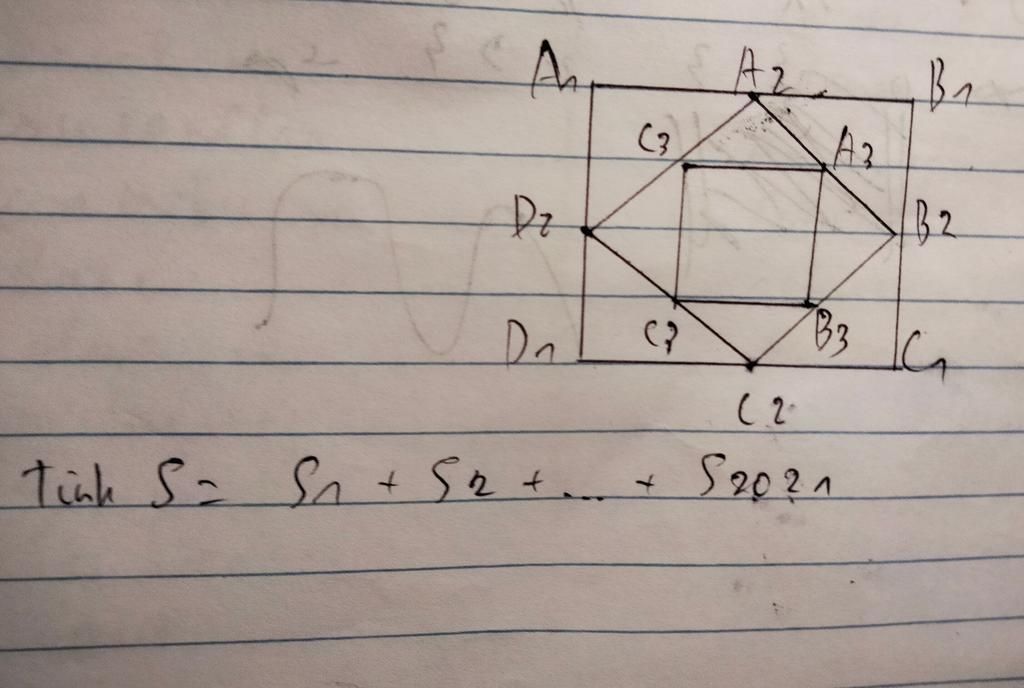 A1 A2 B1
C3 A3
D2 B2
D1 C3 B3 C1
C2
Tính S = S1 + S2 + ... + S2021